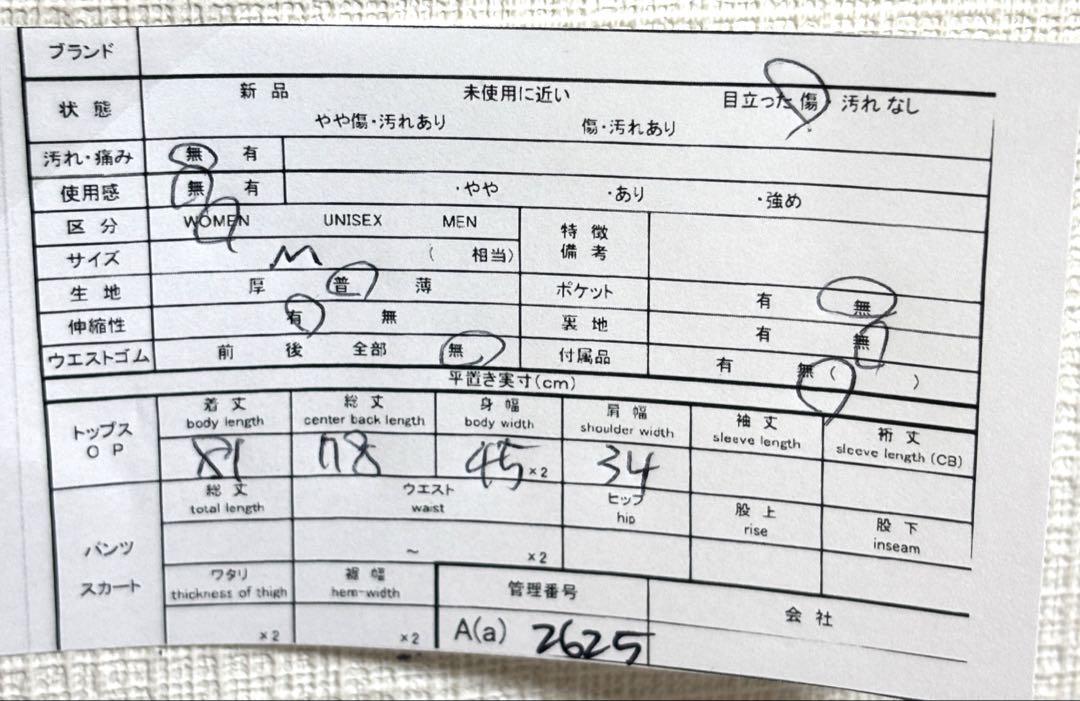 ブランド
状態 新品 未使用に近い 目立った傷・汚れなし
やや傷・汚れあり 傷・汚れあり
汚れ・痛み 無 有
使用感 無 有 ・やや ・あり ・強め
区分 WOMEN UNISEX MEN 特徴
備考
サイズ M ( 相当)
生地 厚 普 薄 ポケット 有 無
伸縮性 有 無 裏地 有 無
ウエストゴム 前 後 全部 無 付属品 有 無 ( )
平置き実寸(cm)
トップス
OP
着丈 総丈 身幅 肩幅 袖丈 裄丈
body length center back length body width shoulder width sleeve length sleeve length (CB)
81 78 45 ×2 34
パンツ
スカート
総丈 ウエスト ヒップ 股上 股下
total length waist hip rise inseam
~ ×2
ワタリ 裾幅 管理番号 会社
thickness of thigh hem-width
×2 ×2 A(a) 2625